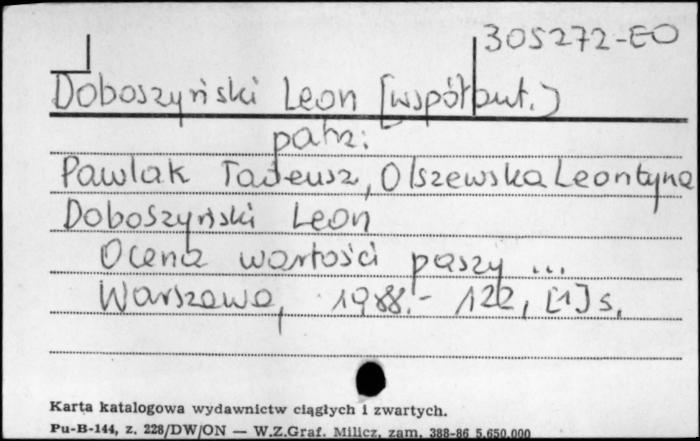 305272-EO
Doboszyński Leon [współaut.)
patrz:
Pawlak Tadeusz, Olszewska Leontyna
Doboszyński Leon
Ocena wartości paszy ...
Warszawa, 1988.- 122, [1] s.
Karta katalogowa wydawnictw ciągłych i zwartych.
Pu-B-144, z. 228/DW/ON — W.Z.Graf. Milicz, zam. 388-86 5.650.000